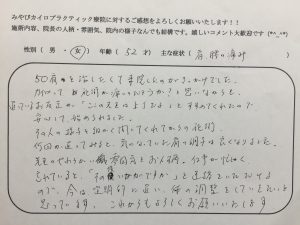 みやびカイロプラクティック療院に対するご感想をよろしくお願いいたします!!
施術内容、院長の人柄・雰囲気、院内の様子なんでも結構です。嬉しいコメント大歓迎です
性別 ( 男 ・ 女 ) 年齢 ( 52 才 ) 主な症状 ( 肩 腰の痛み
50肩を治したくて来院したのがきっかけでした。
と思いながらも、
通っているお友達が「この先生はよ
安心して始められました。
その人の様子を細かく聞いてくれてからの施術。
何回か通ってみると、気になっていた肩の調子は良くなりました。
先生のやわらかい雰囲気とお人柄、仕事が忙しく
されていると、「その後いかがですか」と連絡をくださる
ので、今は定期的に通い、体の調整をしていきたいと
思っています。これからもよろしくお願いいたします